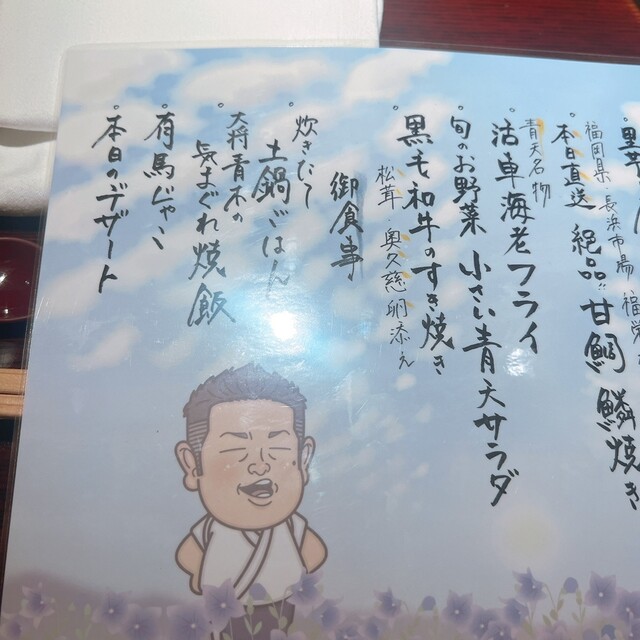 福岡県・長浜市場
本日直送 絶品!! 甘鯛 鱗焼き
青天名物
活車海老フライ
旬のお野菜 小さい青天サラダ
黒毛和牛のすき焼き
松茸・奥久慈卵添え
御食事
炊きたて
土鍋ごはん
大将青木の
気まぐれ焼飯
有馬じゃこ
本日のデザート